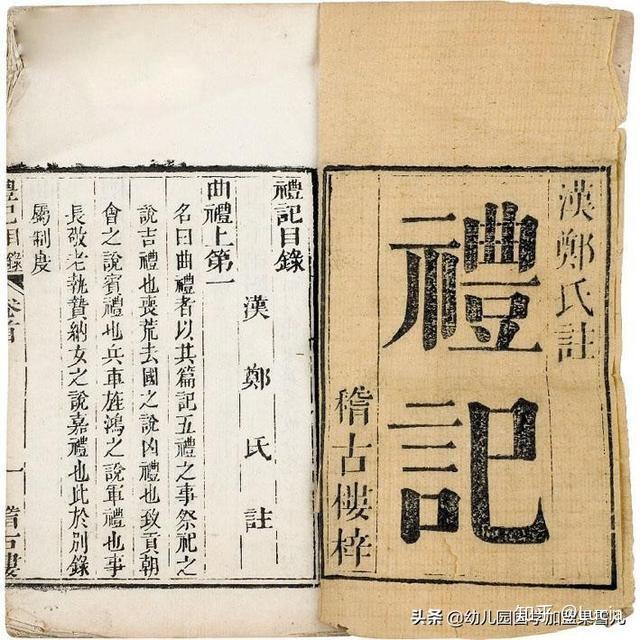 漢鄭氏註
禮記
稽古樓梓
禮記目錄
漢鄭氏註
曲禮上第一
名曰曲禮者以其篇記五禮之事祭祀之
說吉禮也喪荒去國之說凶禮也致貢朝
會之說賓禮也兵車旌鴻之說軍禮也事
長敬老執贄納女之說嘉禮也此於別錄
屬制度
禮記目錄 卷首 一 稽古樓
知乎
头条 @幼儿园国学加盟果雪儿